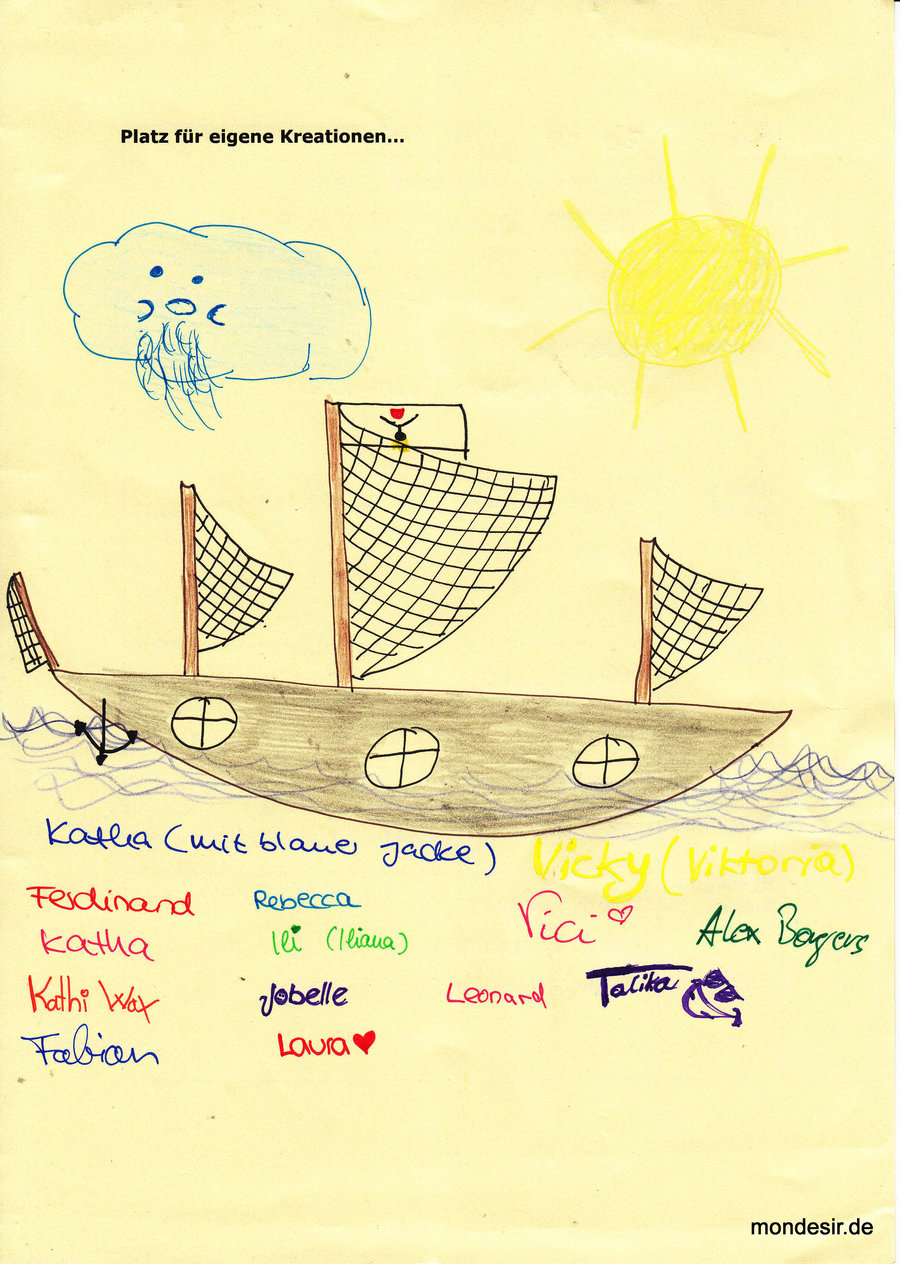 Platz für eigene Kreationen...
Katha (mit blauer Jacke)
Vicky (Viktoria)
Ferdinand Rebecca Vici Alex Bagers
Katha Ili (Iliana)
Kathi Wax Jobelle Leonard Talika
Fabian Laura
mondesir.de